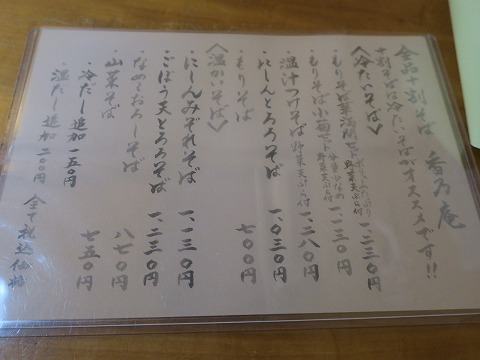 全品十割そば 香の庵
十割そばは冷たいそばがオススメです!!
〈冷たいそば〉
・もりそば 一、二三〇円
・もりそば小 野菜天ぷら付 一、二三〇円
・温汁つけそば 野菜天ぷら付 一、二八〇円
・にしんとろろそば 一、〇三〇円
・もりそば 七〇〇円
〈温かいそば〉
・にしんみぞれそば 一、一三〇円
・ごぼう天とろろそば 一、二三〇円
・なめこおろしそば 八七〇円
・山菜そば 七五〇円
・冷だし追加 一五〇円
・温だし追加 二〇〇円 全て税込価格